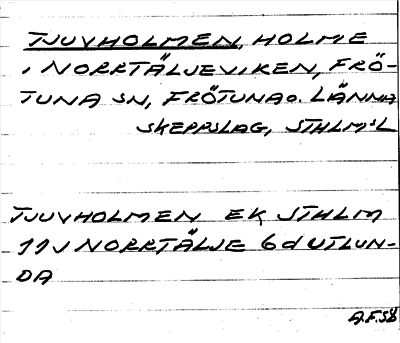 TJUVHOLMEN, HOLME
I NORRTÄLJEVIKEN, FRÖ-
TUNA SN, FRÖTUNA O. LÄNNA
SKEPPSLAG, STHLMS L
TJUVHOLMEN EK STHLM
11J NORRTÄLJE 6d UTLUN-
DA